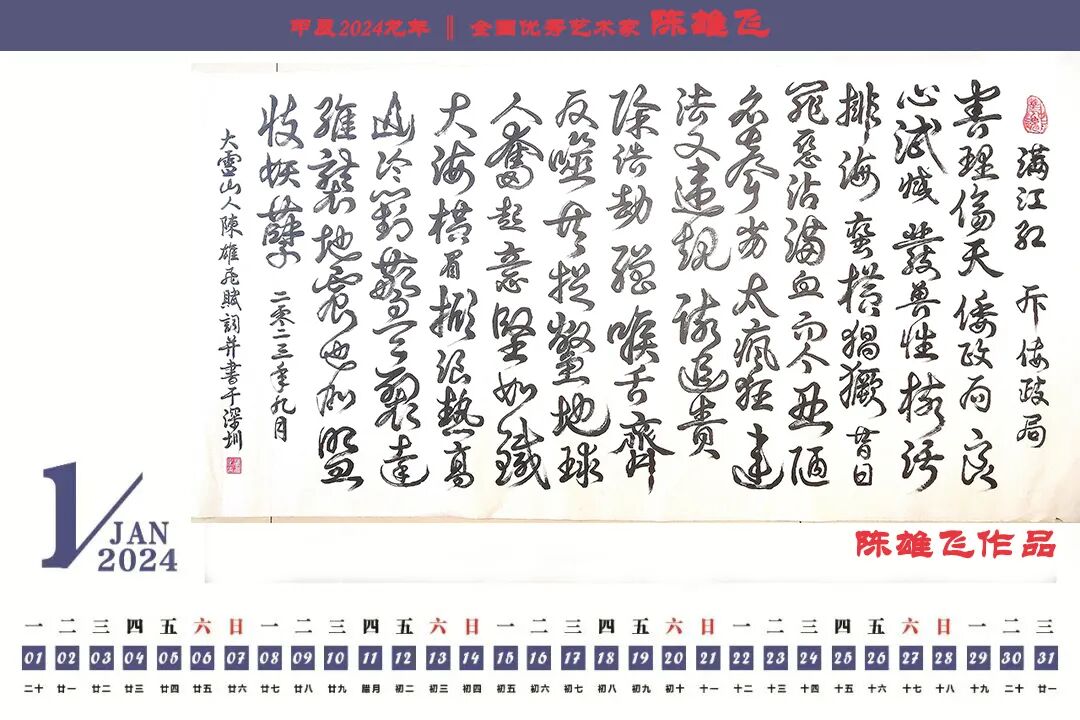 甲辰2024龙年 ‖ 全国优秀艺术家 陈雄飞
满江红 斥倭政局
害理傷天倭政局良
心泯滅發獸性核污
排海蠻橫猖獗昔日
罪惡沾滿血而今丑陋
名声劣太瘋狂違
法又違規須追责
除浩劫强喉舌齊
反噬共捉鱉地球
人奮起意堅如鐵
大海橫眉掀浪熱高
山冷對
襲地震也加盟
妖孽 二零二三年九月
大靈山人陳雄飛賦詞并書于深圳
陈雄飞作品
1/JAN
2024
一 二 三 四 五 六 日 一 二 三 四 五 六 日 一 二 三 四 五 六 日 一 二 三 四 五 六 日 一 二 三
01 02 03 04 05 06 07 08 09 10 11 12 13 14 15 16 17 18 19 20 21 22 23 24 25 26 27 28 29 30 31
二十 廿一 廿二 廿三 廿四 廿五 廿六 廿七 廿八 廿九 腊月 初二 初三 初四 初五 初六 初七 初八 初九 初十 十一 十二 十三 十四 十五 十六 十七 十八 十九 二十 廿一